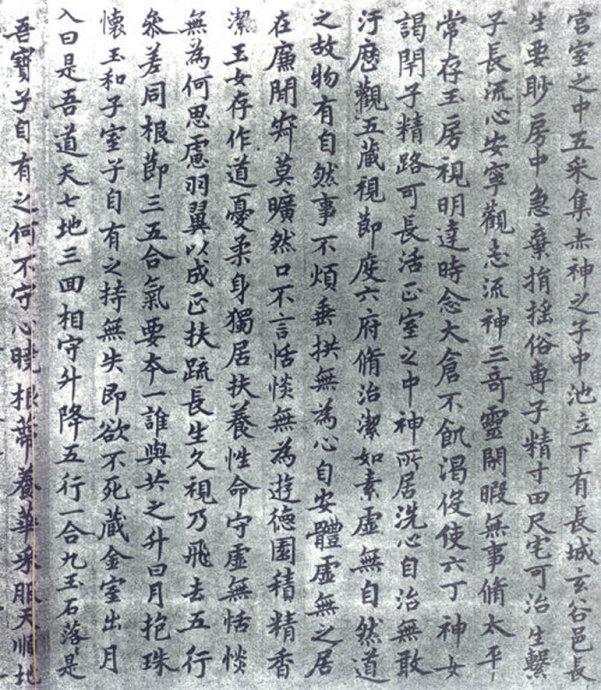 宮室之中五采集赤神之子中池立下有長城玄谷邑長
生要眇房中急棄捐搖俗専子精寸田尺宅可治生繫
子長流心安寧觀志流神三奇靈閑暇無事脩太平
常存玉房視明達時念大倉不飢渴役使六丁神女
謁閇子精路可長活正室之中神所居洗心自治無敢
汙歷觀五藏視節度六府脩治潔如素虛無自然道
之故物有自然事不煩垂拱無為心自安體虛無之居
在廉間寂莫曠然口不言恬惔無為遊徳園積精香
潔玉女存作道憂柔身獨居扶養性命守虛無恬惔
無為何思慮羽翼以成正扶疏長生久視乃飛去五行
叅差同根節三五合氣要夲一誰與共之升日月抱珠
懷玉和子室子自有之持無失即欲不死藏金室出月
入日是吾道天七地三回相守升降五行一合九玉石落落是
吾寶子自有之何不守心曉根蒂養華采服天順地